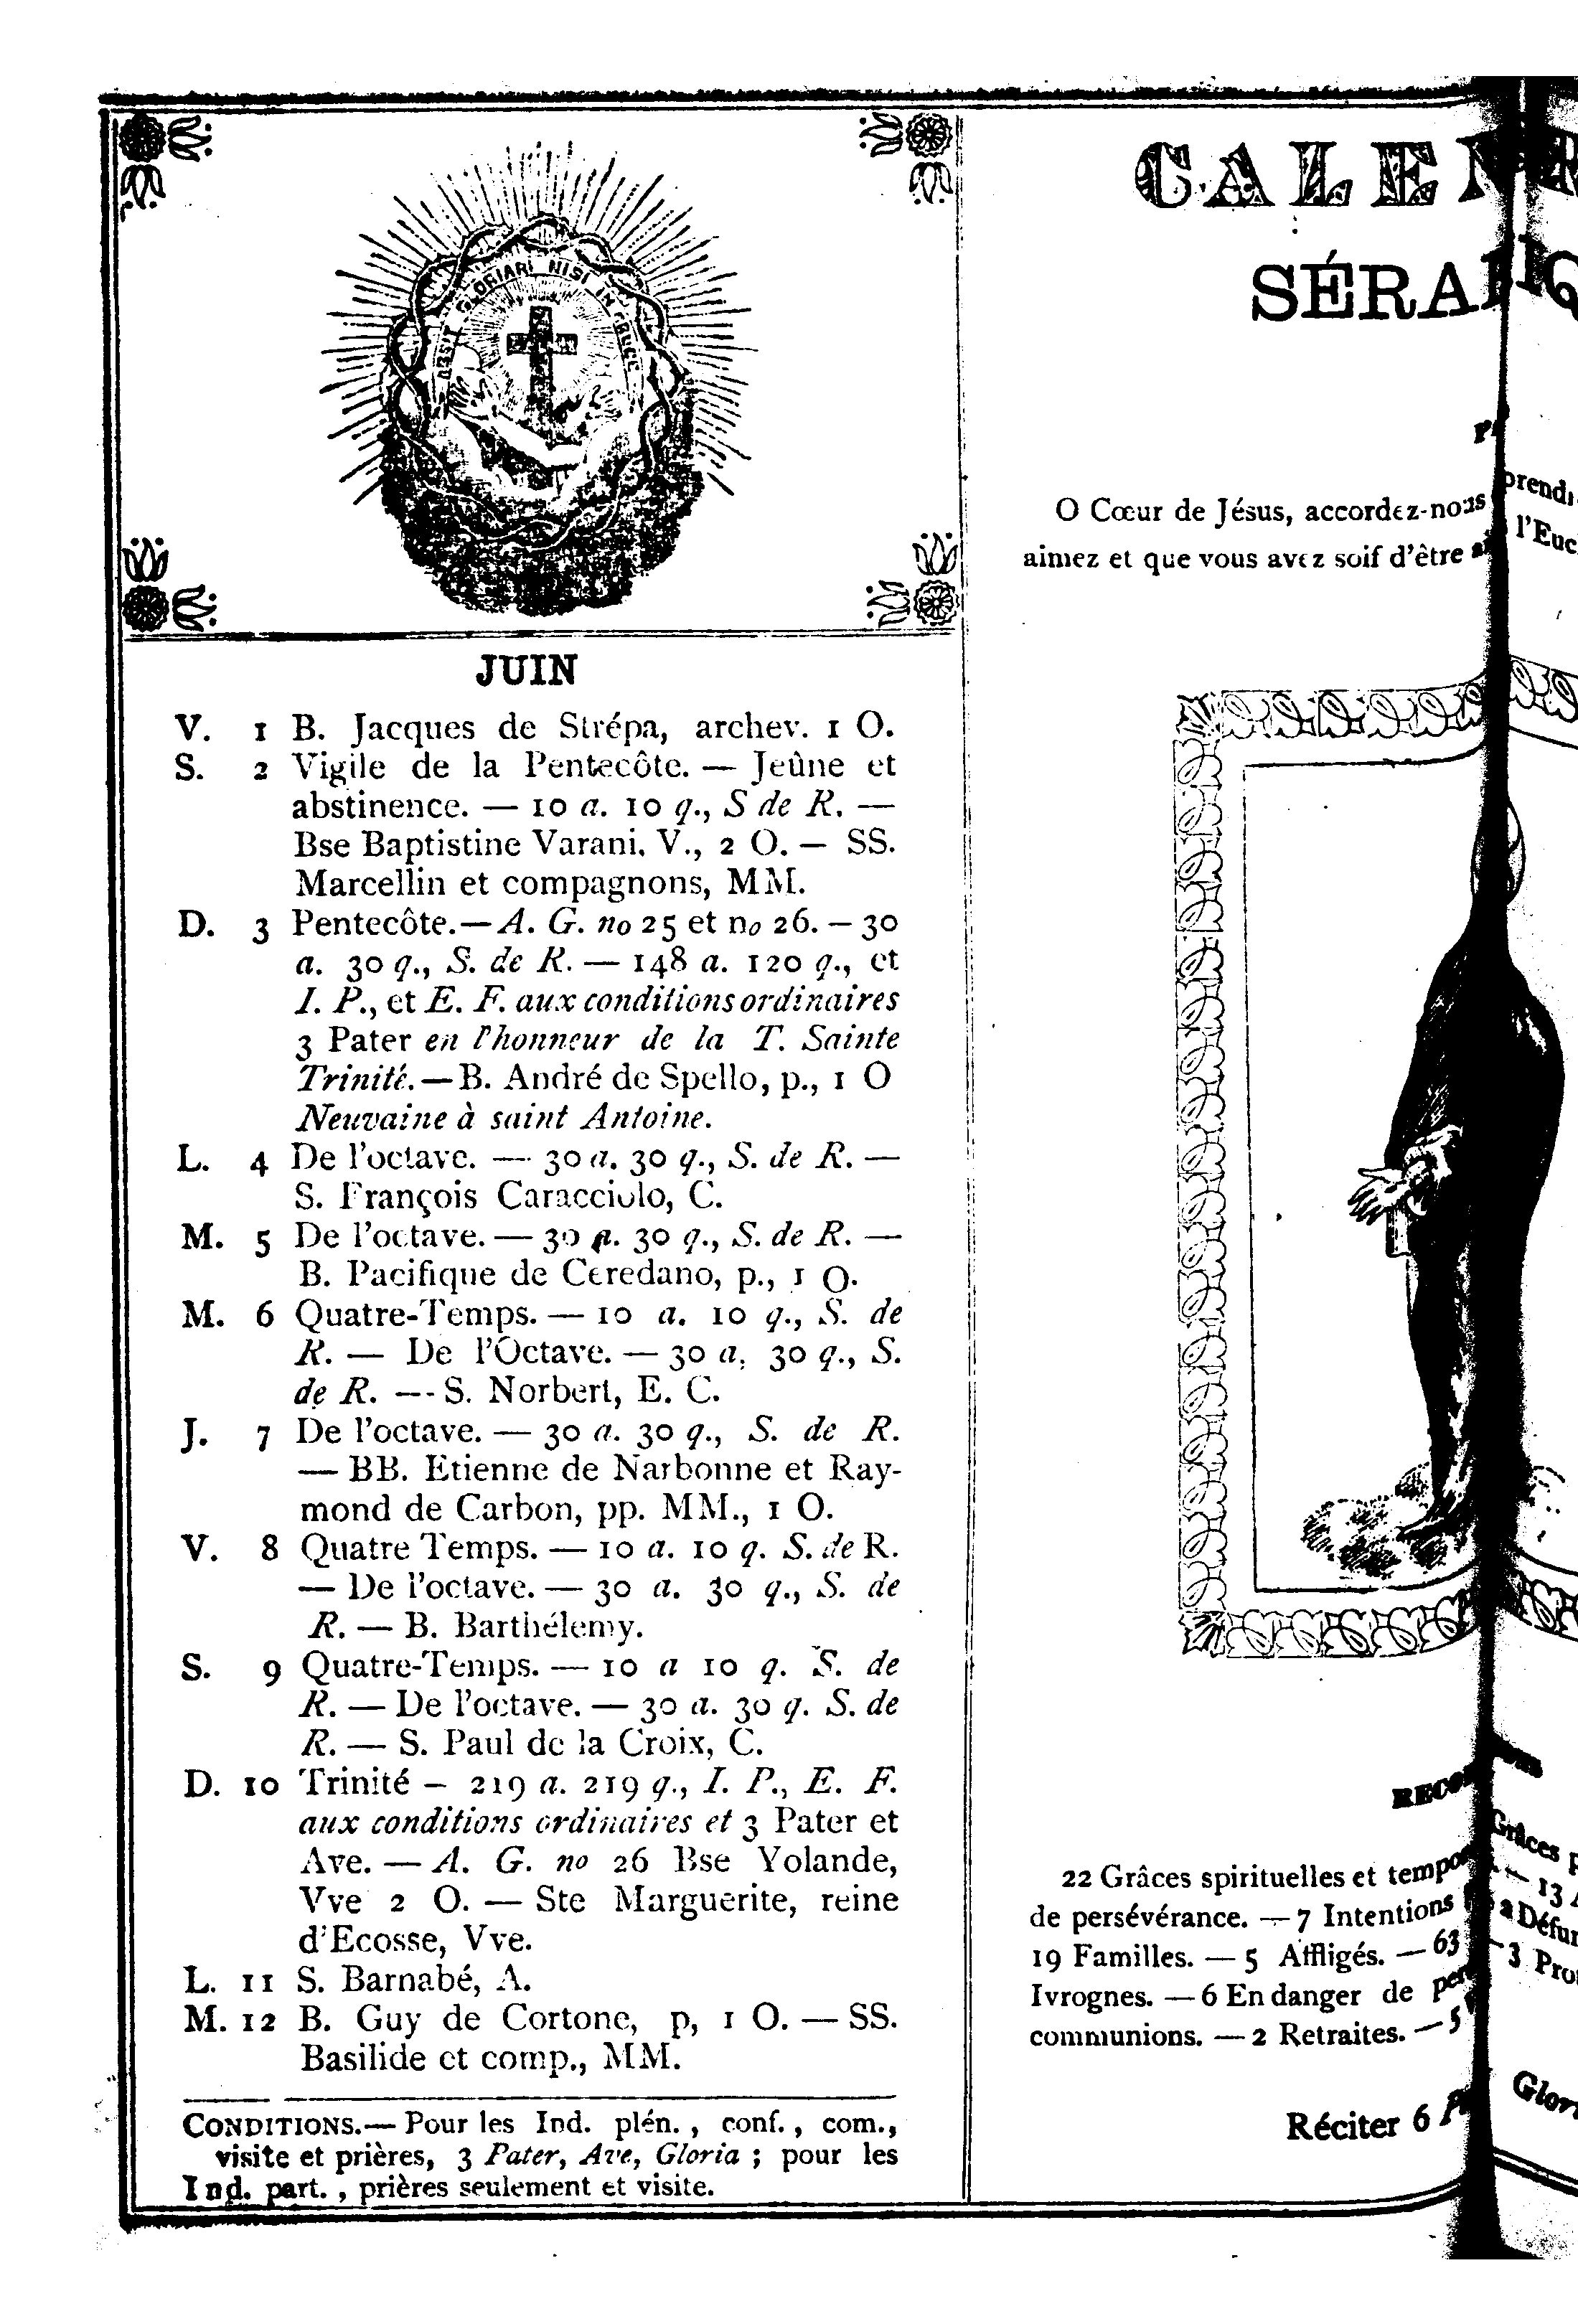 ABSIT GLORIARI NISI IN CRUCE
JUIN
V. 1 B. Jacques de Strépa, archev. 1 O.
S. 2 Vigile de la Pentecôte. — Jeûne et
abstinence. — 10 a. 10 q., S de R. —
Bse Baptistine Varani. V., 2 O. — SS.
Marcellin et compagnons, MM.
D. 3 Pentecôte. — A. G. no 25 et no 26. — 30
a. 30 q., S. de R. — 148 a. 120 q., et
I. P., et E. F. aux conditions ordinaires
3 Pater en l'honneur de la T. Sainte
Trinité. — B. André de Spello, p., 1 O
Neuvaine à saint Antoine.
L. 4 De l'octave. — 30 a. 30 q., S. de R. —
S. François Caracciolo, C.
M. 5 De l'octave. — 30 a. 30 q., S. de R. —
B. Pacifique de Ceredano, p., 1 O.
M. 6 Quatre-Temps. — 10 a. 10 q., S. de
R. — De l'Octave. — 30 a. 30 q., S.
de R. — S. Norbert, E. C.
J. 7 De l'octave. — 30 a. 30 q., S. de R.
— BB. Etienne de Narbonne et Ray-
mond de Carbon, pp. MM., 1 O.
V. 8 Quatre Temps. — 10 a. 10 q. S. de R.
— De l'octave. — 30 a. 30 q., S. de
R. — B. Barthélemy.
S. 9 Quatre-Temps. — 10 a 10 q. S. de
R. — De l'octave. — 30 a. 30 q. S. de
R. — S. Paul de la Croix, C.
D. 10 Trinité — 219 a. 219 q., I. P., E. F.
aux conditions ordinaires et 3 Pater et
Ave. — A. G. no 26 Bse Yolande,
Vve 2 O. — Ste Marguerite, reine
d'Ecosse, Vve.
L. 11 S. Barnabé, A.
M. 12 B. Guy de Cortone, p, 1 O. — SS.
Basilide et comp., MM.
CONDITIONS. — Pour les Ind. plén., conf., com.,
visite et prières, 3 Pater, Ave, Gloria ; pour les
Ind. part., prières seulement et visite.
CALEN
SÉRAFIQ
O Cœur de Jésus, accordez-nous
aimez et que vous avez soif d'être
l'Euc
RECO
Grâces
22 Grâces spirituelles et tempo
de persévérance. — 7 Intentions
19 Familles. — 5 Affligés. — 63
Ivrognes. — 6 En danger de
communions. — 2 Retraites. — 5
— 13
Défun
3 Pro
Réciter 6
Glor